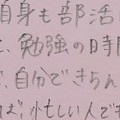 自身も部活
に、勉強の時間
で、自分できちん
れば、忙しい人でも